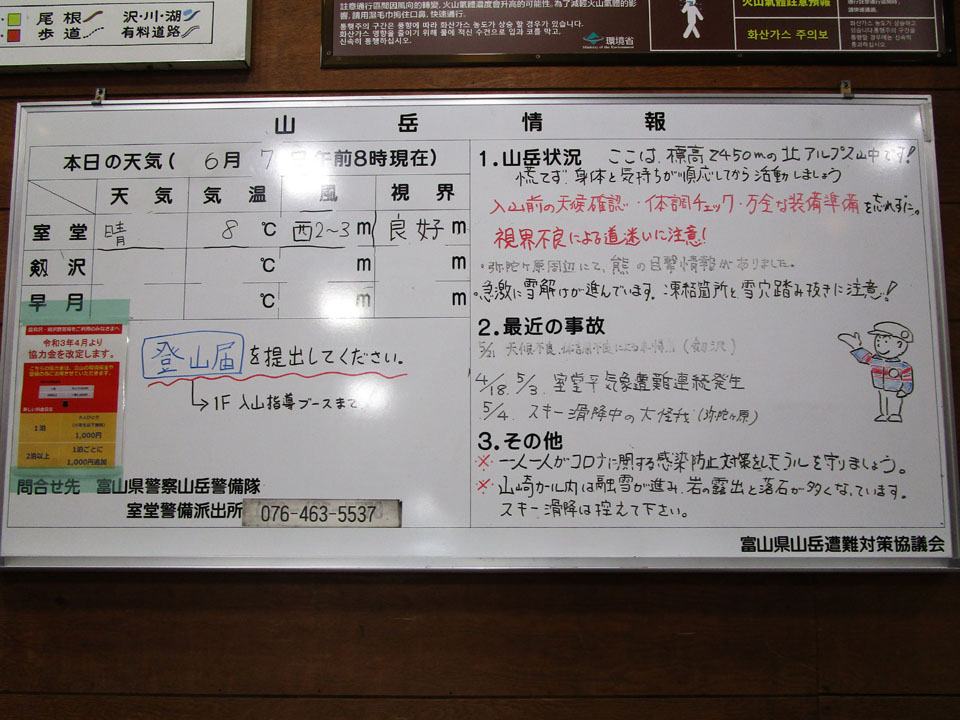 尾根 沢・川・湖
歩道 有料道路
註意通行區間因風向的轉變，火山氣體濃度會升高的可能性。為了減輕火山氣體的影
響，請用濕毛巾捂住口鼻，快速通行。
통행주의 구간은 풍향에 따라 화산가스 농도가 상승 할 경우가 있습니다.
화산가스 영향을 줄이기 위해 물에 적신 수건으로 입과 코를 막고,
신속히 통행하십시오.
環境省
Ministry of the Environment
火山氣體註意預報
화산가스 주의보
山岳情報
本日の天気( 6月 7日 午前8時現在)
天気 気温 風 視界
室堂 晴 8℃ 西2~3m 良好m
剱沢 ℃ m m
早月 ℃ m m
令和3年4月より
協力金を改定します。
1泊
1,000円
2泊以上 1泊ごとに
1,000円追加
登山届を提出してください。
→1F 入山指導ブースまで
問合せ先 富山県警察山岳警備隊
室堂警備派出所 076-463-5537
1.山岳状況 ここは、標高2450mの北アルプス山中です!
慌てず、身体と気持ちが順応してから活動しましょう
入山前の天候確認・体調チェック・万全な装備準備を忘れずに。
視界不良による道迷いに注意!
・弥陀ヶ原周辺にて、熊の目撃情報がありました。
・急激に雪解けが進んでいます。凍結箇所と雪穴踏み抜きに注意!
2.最近の事故
5/21 天候不良、(剱沢)
4/18.5/3. 室堂平気象遭難連続発生
5/4. スキー滑降中の大怪我(弥陀ヶ原)
3.その他
※ 一人一人がコロナに関する感染防止対策としてルールを守りましょう。
※ 山崎カール内は融雪が進み、岩の露出と落石が多くなっています。
スキー滑降は控えて下さい。
富山県山岳遭難対策協議会